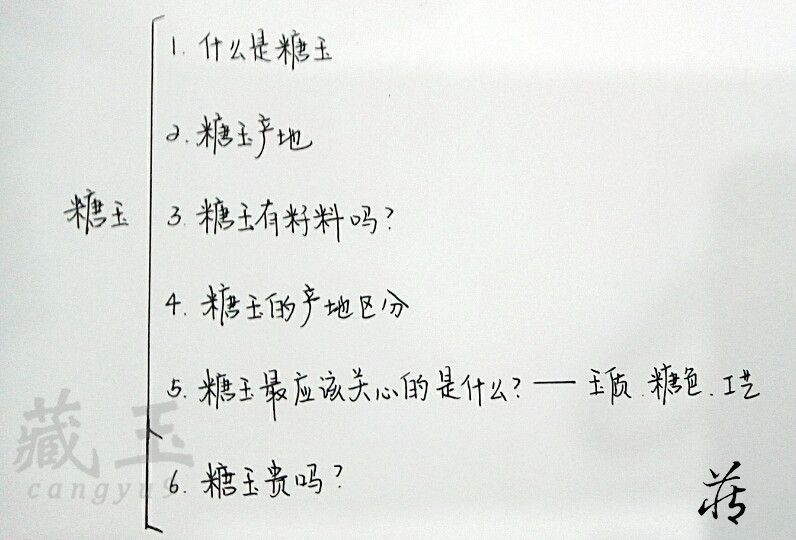 糖玉
1. 什么是糖玉
2. 糖玉产地
3. 糖玉有籽料吗?
4. 糖玉的产地区分
5. 糖玉最应该关心的是什么? — 玉质、糖色、工艺
6. 糖玉贵吗?
藏玉
cangyu9